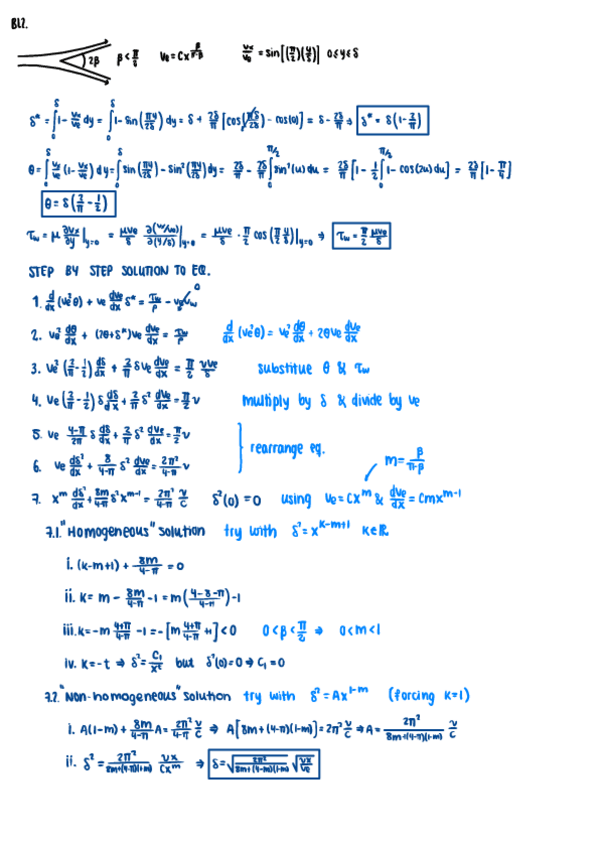 BL2.
2β β < π/2 ve = Cx^(β/(π-β)) vx/ve = sin[(π/2)(y/δ)] 0≤y≤δ
δ* = ∫₀^δ 1 - vx/ve dy = ∫₀^δ 1 - sin(πy/2δ) dy = δ + 2δ/π [cos(πδ/2δ) - cos(0)] = δ - 2δ/π ⇒ δ* = δ(1 - 2/π)
θ = ∫₀^δ vx/ve (1 - vx/ve) dy = ∫₀^δ sin(πy/2δ) - sin²(πy/2δ) dy = 2δ/π - 2δ/π ∫₀^(π/2) sin²(u) du = 2δ/π [1 - 1/2 ∫₀^(π/2) 1 - cos(2u) du] = 2δ/π [1 - π/4]
θ = δ(2/π - 1/2)
τw = μ ∂vx/∂y |y=0 = μve/δ ∂(vx/ve)/∂(y/δ) |y=0 = μve/δ · π/2 cos(π/2 y/δ)|y=0 ⇒ τw = π/2 μve/δ
STEP BY STEP SOLUTION TO EQ.
1. d/dx (ve²θ) + ve dve/dx δ* = τw/ρ - vevw 0
2. ve² dθ/dx + (2θ+δ*)ve dve/dx = τw/ρ d/dx (ve²θ) = ve² dθ/dx + 2θve dve/dx
3. ve² (2/π - 1/2) dδ/dx + 2/π δve dve/dx = π/2 νve/δ substitue θ & τw
4. ve (2/π - 1/2) δ dδ/dx + 2/π δ² dve/dx = π/2 ν multiply by δ & divide by ve
5. ve (4-π)/2π δ dδ/dx + 2/π δ² dve/dx = π/2 ν
rearrange eq.
6. ve dδ²/dx + 8/(4-π) δ² dve/dx = 2π²/(4-π) ν m = β/(π-β)
7. x^m dδ²/dx + 8m/(4-π) δ² x^(m-1) = 2π²/(4-π) ν/C δ²(0) = 0 using ve = Cx^m & dve/dx = Cmx^(m-1)
7.1. "Homogeneous" solution try with δ² = x^(k-m+1) k∈ℝ
i. (k-m+1) + 8m/(4-π) = 0
ii. k = m - 8m/(4-π) - 1 = m((4-8-π)/(4-π)) - 1
iii. k = -m (4+π)/(4-π) - 1 = -[m (4+π)/(4-π) + 1] < 0 0<β<π/2 ⇒ 0<m<1
iv. k = -t ⇒ δ² = C₁/x^t but δ²(0) = 0 ⇒ C₁ = 0
7.2. "Non-homogeneous" solution try with δ² = Ax^(1-m) (forcing k=1)
i. A(1-m) + 8m/(4-π) A = 2π²/(4-π) ν/C ⇒ A[8m + (4-π)(1-m)] = 2π² ν/C ⇒ A = 2π²/(8m+(4-π)(1-m)) ν/C
ii. δ² = 2π²/(8m+(4-π)(1-m)) νx/Cx^m ⇒ δ = √(2π²/(8m+(4-π)(1-m))) √(νx/ve)